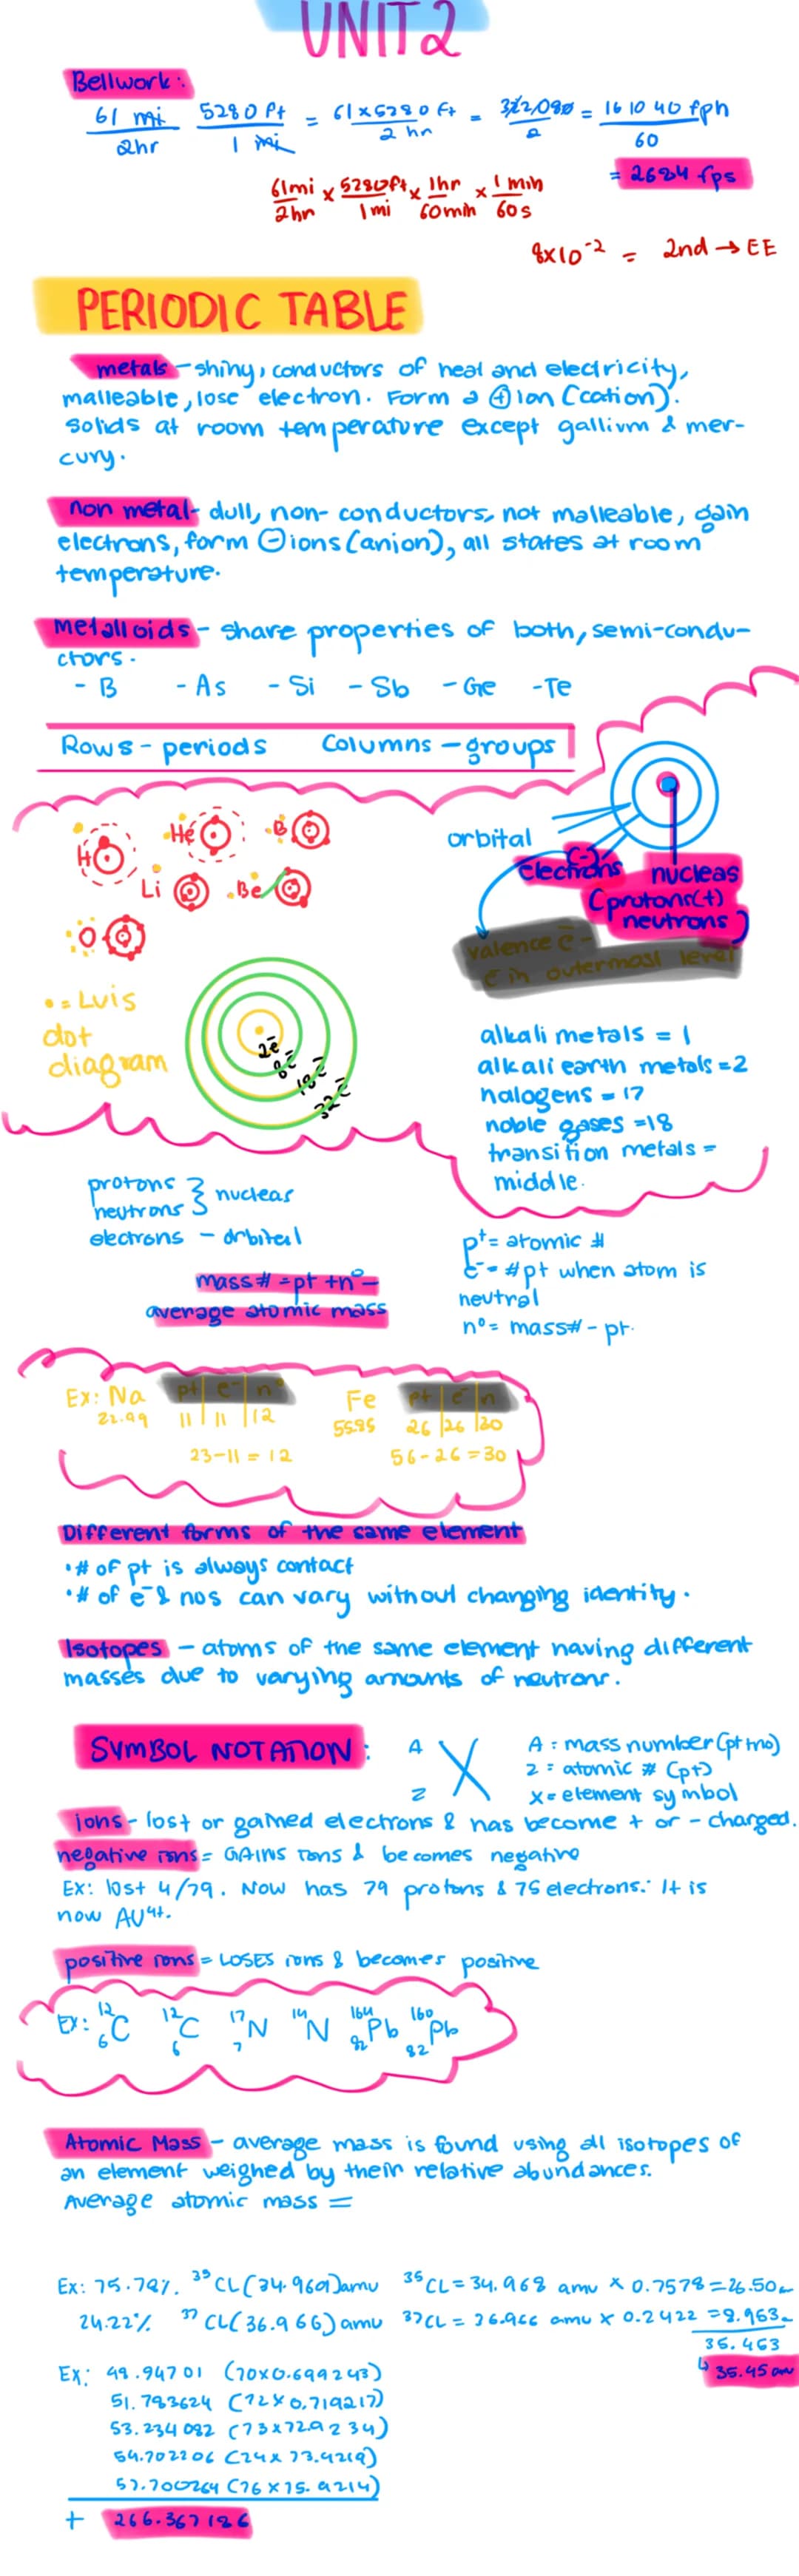 UNIT 2
Bellwork:
61 mi / 2hr 5280 ft / 1 mi = 61 x 5280 ft / 2 hr = 322,080 / 2 = 161040 fph / 60
= 2684 fps
61mi / 2hr x 5280ft / 1mi x 1hr / 60min x 1 min / 60s
8x10⁻² = 2nd → EE
PERIODIC TABLE
metals - shiny, conductors of heat and electricity,
malleable, lose electron. Form a ⊕ ion (cation).
Solids at room temperature except gallium & mer-
cury.
non metal - dull, non-conductors, not malleable, gain
electrons, form ⊖ ions (anion), all states at room
temperature.
Metalloids - share properties of both, semi-condu-
ctors.
- B - As - Si - Sb - Ge - Te
Rows - periods Columns - groups
H He B
Li Be
O
• = Luis
dot
diagram
2e⁻
8e⁻
18e⁻
32e⁻
orbital
electrons (-)
nucleas
(protons(+)
neutrons)
valence e⁻ -
e⁻ in outermost level
alkali metals = 1
alkali earth metals = 2
halogens = 17
noble gases = 18
transition metals =
middle.
protons
neutrons } nuclear
electrons - orbital
mass# = p+ + n° -
average atomic mass
p⁺ = atomic #
e⁻ = #p+ when atom is
neutral
n° = mass# - p+.
Ex: Na p+ | e⁻ | n°
22.99 11 | 11 | 12
23-11 = 12
Fe p+ | e⁻ | n
55.85 26 | 26 | 30
56-26 = 30
Different forms of the same element
• # of p+ is always contact
• # of e⁻ & nos can vary without changing identity.
Isotopes - atoms of the same element having different
masses due to varying amounts of neutrons.
SYMBOL NOTATION:
A
Z X
A = mass number (p+ + no)
Z = atomic # (p+)
x = element symbol
ions - lost or gained electrons & has become + or - charged.
negative ions = GAINS ions & becomes negative
Ex: lost 4/79. Now has 79 protons & 75 electrons. It is
now AU⁴⁺.
positive ions = LOSES ions & becomes positive
Ex: ¹²₆C ¹²₆C ¹⁷₇N ¹⁴N ¹⁶⁴₈₂Pb ¹⁶⁰₈₂Pb
Atomic Mass - average mass is found using all isotopes of
an element weighed by their relative abundances.
Average atomic mass =
Ex: 75.78% ³⁵CL (34.969) amu ³⁵CL = 34.968 amu x 0.7578 = 26.50
24.22% ³⁷CL (36.966) amu ³⁷CL = 36.966 amu x 0.2422 = 8.953
35.453
↳ 35.45 amu
Ex: 48.94701 (70x0.699243)
51.783624 (72x0.719217)
53.234082 (73x72.9234)
54.702206 (74x73.9219)
57.700264 (76x75.9214)
+ 266.367186